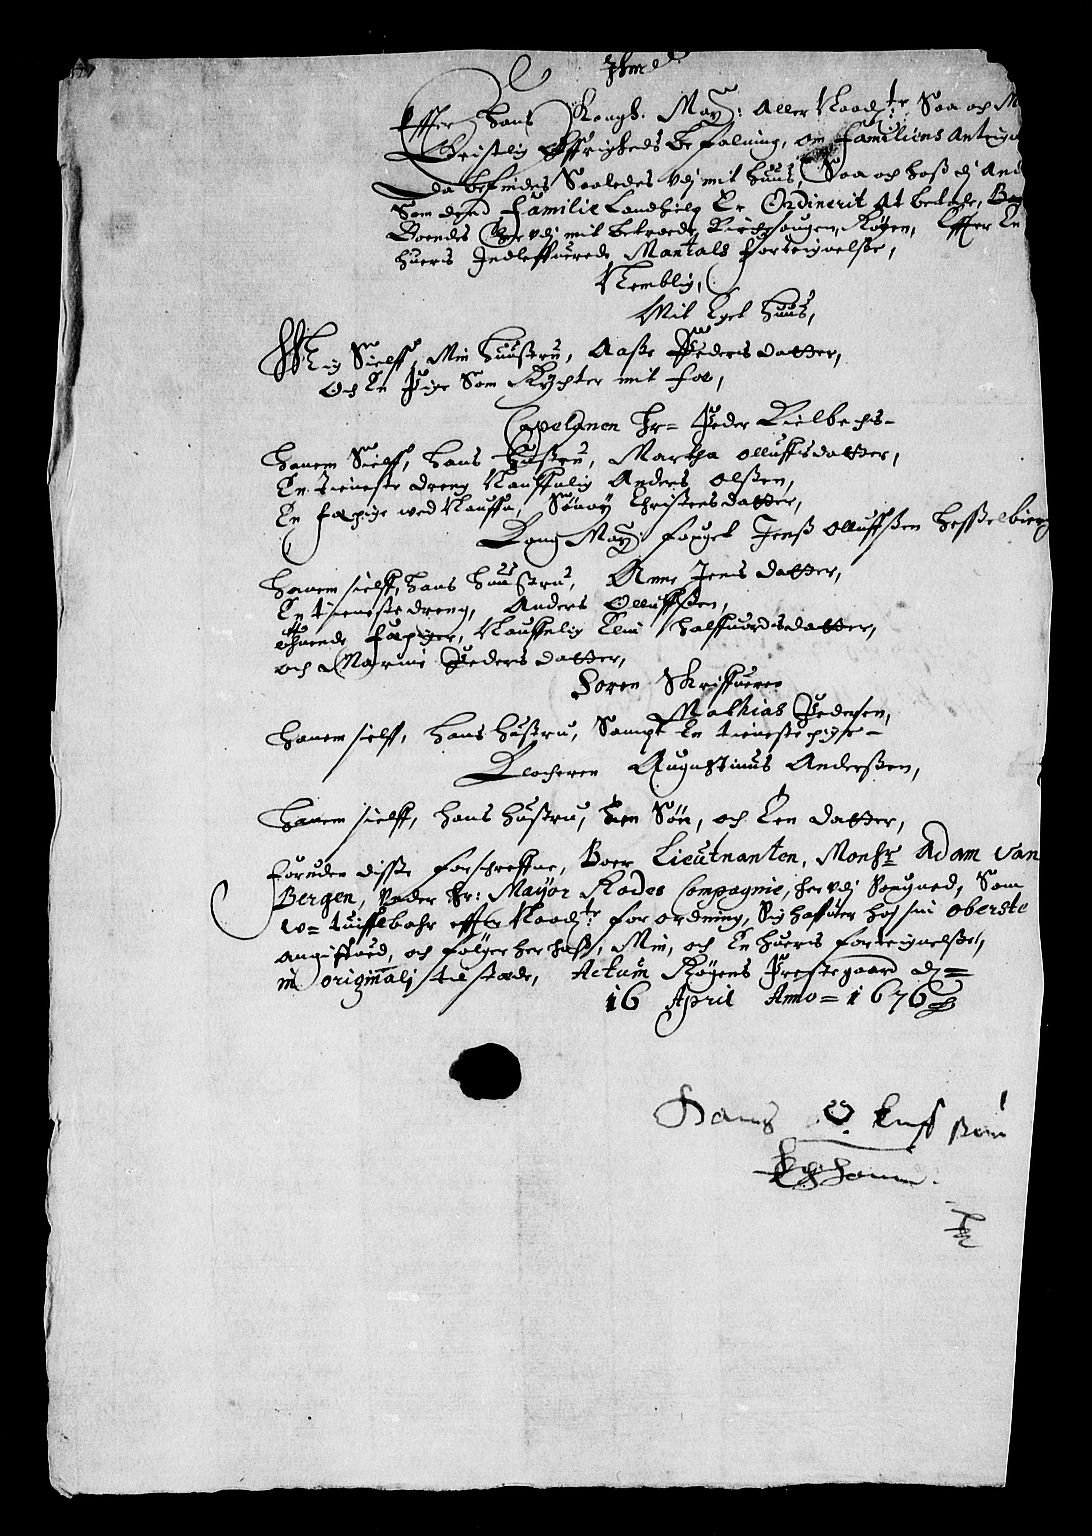 Effter Hans Kongl. May: Aller Naad:ste Saa och
Christelig Øffrigheds Befalning, om Familiens Anteign
Da befindes Saaledes udj mit Huus, Saa och hoß dj And
Som dend Familie Landhielp Er Ordinerit At betale,
Boendes Ere udj mit betroede Kirchesougen, Røgen, Effter En
huers Indleffuerede Mantals forteignelße,
Nemblig,
Mit Eget Huus,
Mig Sielff, Min Huustru, Aaße Peders datter,
Och En Pige Som Røchter mit fæ,
Capelanen Hr= Peder Kielbechs-
Hanem Sielff, Hans Hustru, Martha Olluffsdatter,
En tienneste dreng Nauffnlig Anders Olßen,
En fæpige wed Naffn, Sønøy Christensdatter,
Kong May: fougel Jenß Olluffßen Heßelbierg
Hanem sielff, hans Huustru, Anne Jens datter,
En tienneste dreng, Anders Olluffßen,
Thuende fæpiger, Nauffnlig Eli Halffuordsdatter,
och Marrine Peders datter,
Soren Skriffueren
Mathias Pedersen,
Hanem sielff, Hans Hustru, Sampt En tienneste pige-
Klocheren Augustinus Anderßen,
Hanem sielff, Hans Hustru, Een Søn, och Een datter,
Foruden disse forschreffne, Boer Lieutnanten, Monsr Adam Van
Bergen, Under Hr: Mayor Rodes Compagnie, her udj Sougned, Som
u=tuiffelbahr effter Naad:ste forordning, Sig haffuer hoß sin Oberste
angiffued, och følger her hoß, Min, och En huers forteignelße,
in originalj til stæde, Actum Røgens Prestegaard dj=
16 April Anno= 1676
Hans